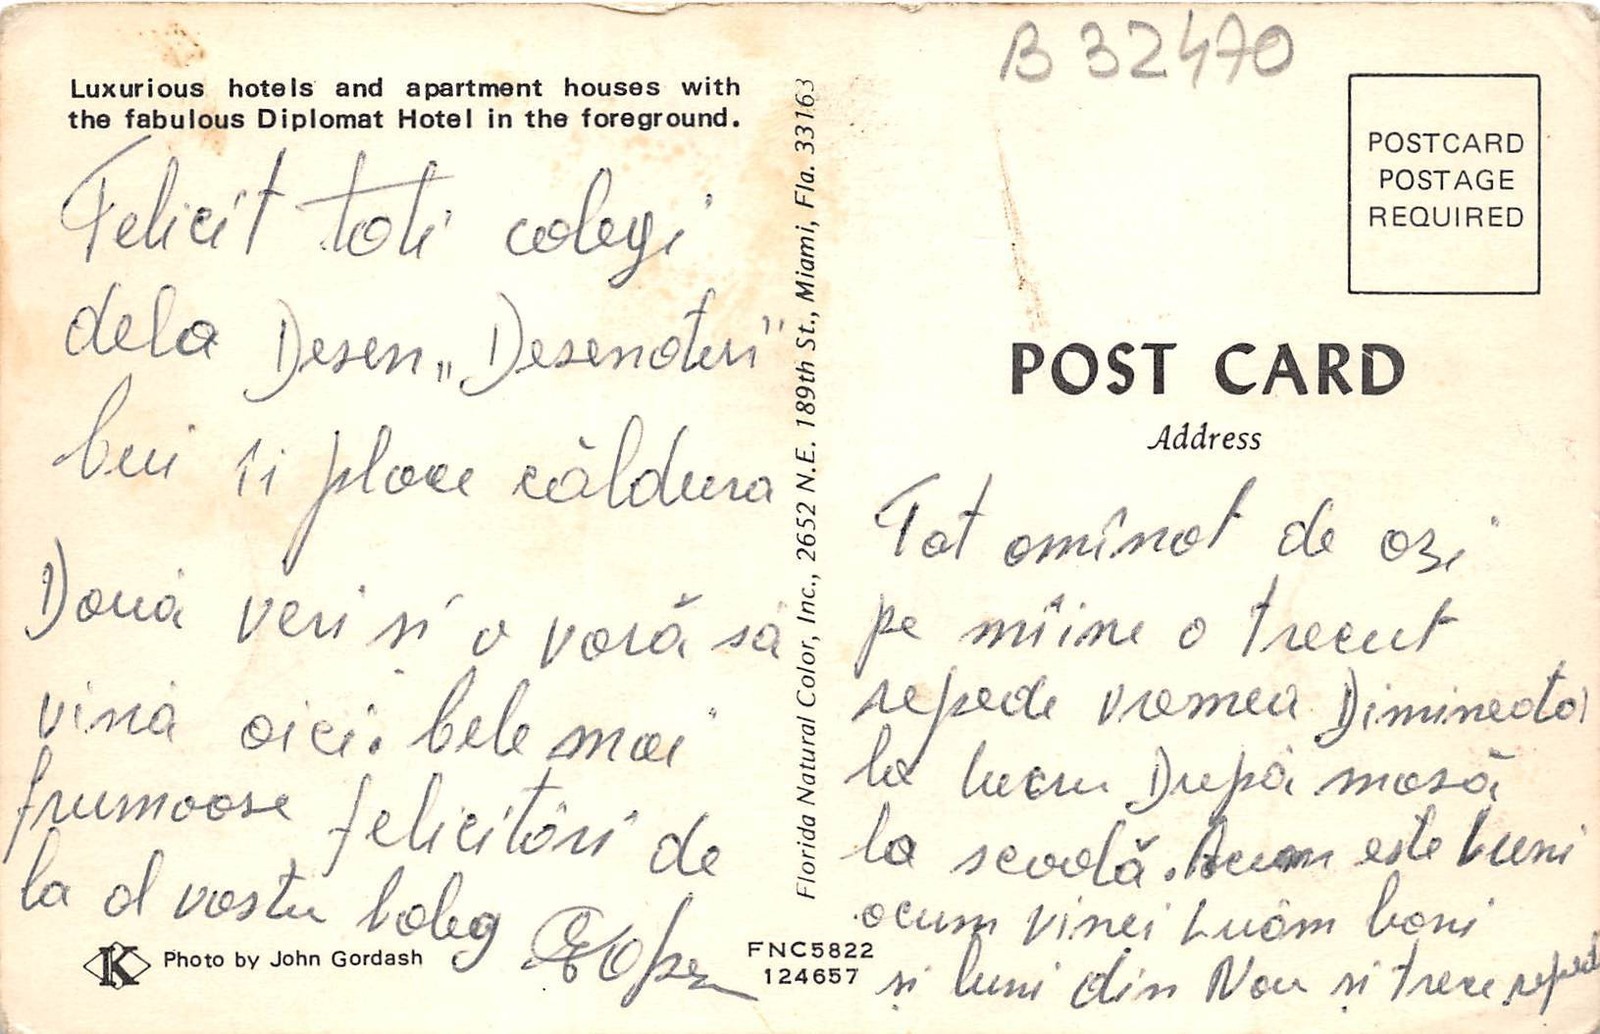 B 32470
Luxurious hotels and apartment houses with
the fabulous Diplomat Hotel in the foreground.
Felicit toti colegi
dela Desen „Desenatori"
lui îi place căldura
Două veri si o vară să
vină aici. cele mai
frumoase felicitări de
la al vostru coleg
Photo by John Gordash
K
Florida Natural Color, Inc., 2652 N.E. 189th St., Miami, Fla. 33163
FNC5822
124657
POSTCARD
POSTAGE
REQUIRED
POST CARD
Address
Tot amînat de azi
pe mîine a trecut
repede vremea Dimineata
la lucru După masă
la scoală. Acum este Luni
acum vineri Luăm bani
si luni din Nou si trece repede